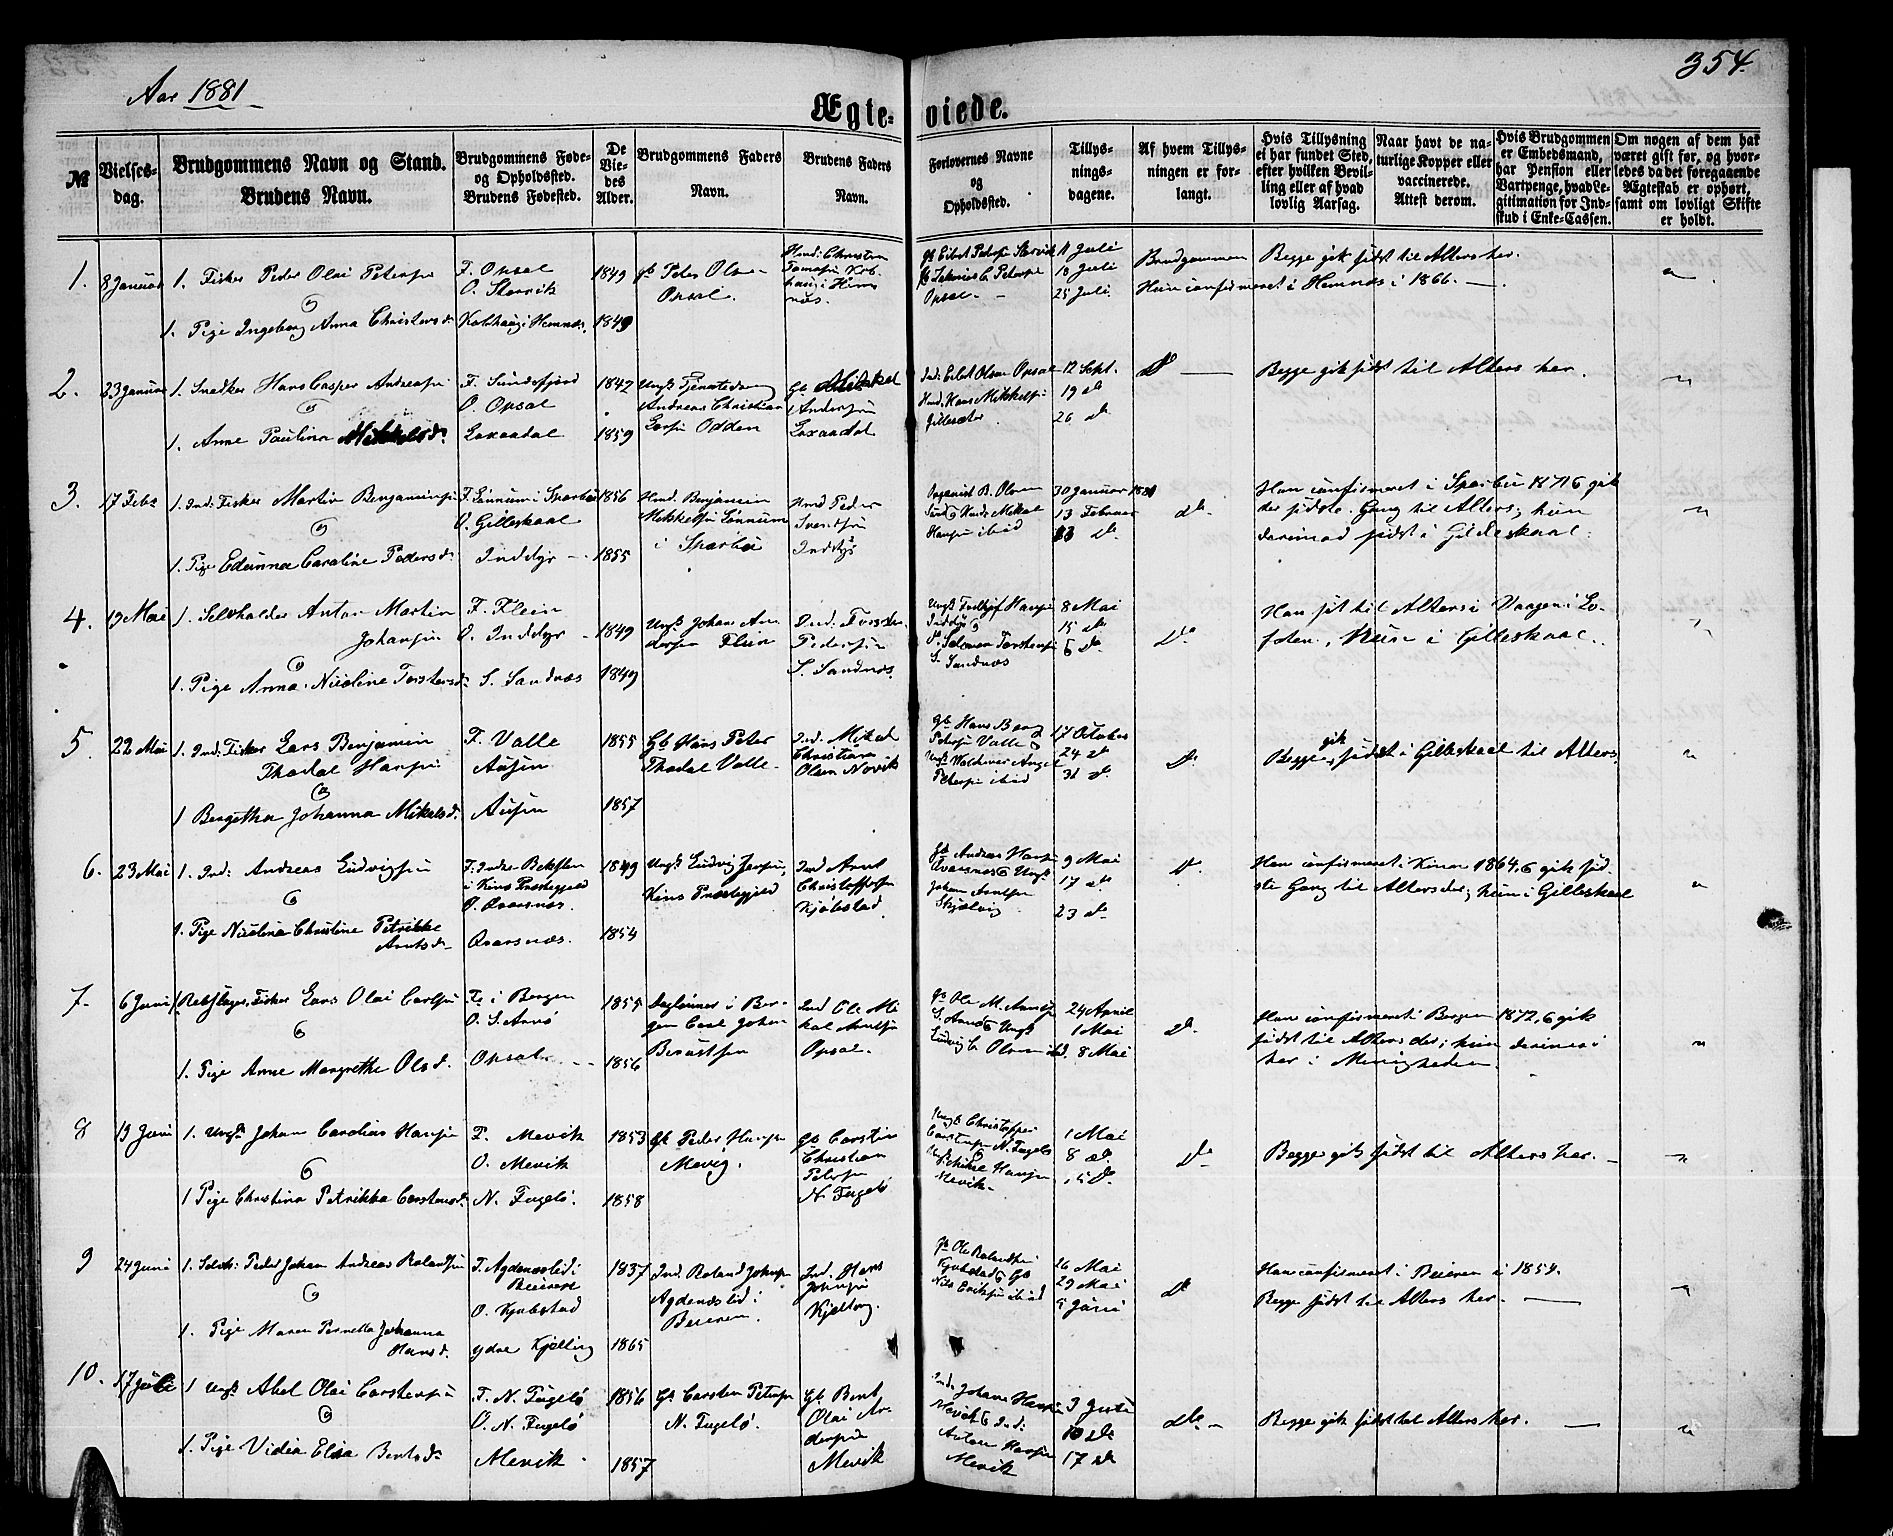 Aar 1881
354.
Ægte-
viede.
№
Vielses-
dag.
Brudgommens Navn og Stand.
Brudens Navn.
Brudgommens Føde-
og Opholdssted.
Brudens Fødested.
De
Vie-
des
Alder.
Brudgommens Faders
Navn.
Brudens Faders
Navn.
Forlovernes Navne
og
Opholdssted.
Tillys-
nings-
dagene.
Af hvem Tillys-
ningen er for-
langt.
Hvis Tillysning
ei har fundet Sted,
efter hvilken Bevil-
ling eller af hvad
lovlig Aarsag.
Naar havt de na-
turlige Kopper eller
vaccinerede.
Attest derom.
Hvis Brudgommen
er Embedsmand,
har Pension eller
Vartpenge, hvad Le-
gitimation for Ind-
skud i Enke-Cassen.
Om nogen af dem har
været gift før, og hvor-
ledes da det foregaaende
Ægteskab er ophørt,
samt om lovligt Skifte
er holdt.
1.
8 Januar
1. Fisker Peder Olai Petersen
&
1. Pige Ingeborg Anna Christensd.
F. Opsal
O. Storvik
Kolbhaug i Hemnæs.
1849
1849
gb Peder Olsen
Opsal.
11 Juli
18 Juli
25 Juli
Brudgommen
Begge gik sidst til Alters her.
Hun confirmeret i Hemnæs i 1866.
2.
23 Januar
1. Snedker Hans Casper Andreasen
&
1. Anne Paulina Mikkelsd.
F. Søndefjord
O. Opsal
Laxaadal
1842
1859
Andreas Christian
Odden
gb Mikkel
Andersen
Laxaadal
Ind: Eilert Olsen Opsal
Hans Mikkelsen
Gillesæter
12 Sept.
19 do
26 do
do
Begge gik sidst til Alters her.
3.
17 Febr
1. Ind: Fisker Martin Benjaminsen
&
1. Pige Edianna Caroline Pedersd.
F. Lønnum i Sparbu
O. Gilleskaal
Inddyr
1856
1855
Hmd. Benjamin
Mikkelsen Lønnum
i Sparbu
Hmd Peder
Inddyr
Organist B. Olsen
Hansen ibid
30 Januar 1881
13 Februar
13 do
do.
Han confirmeret i Sparbu 1871 & gik
der sidste Gang til Alters; hun
derimod sidst i Gildeskaal.
4.
19 Mai
1. Selvholder Anton Martin
Johansen
&
1. Pige Anna Nicoline Torstensd.
F. Flein
O. Inddyr
S. Sandnæs
1849
1849
Ungk Johan An-
dersen Flein
Ind. Torsten
Pedersen
S. Sandnæs
Inddyr &
Salomon Torstensen
S. Sandnæs
8 Mai
15 do
6 do.
do.
Han sidst til Alters i Vaagen i Lo-
foten, Hun i Gilleskaal.
5.
22 Mai
1. Ind: Fisker Lars Benjamin
Thodal Hansen
&
1 Bergetha Johanna Mikalsd.
F. Valle
Ausen
Ausen
1855
1857
Gb Hans Peter
Thodal Valle
Ind. Mikal
Christian
Olsen Novik
gb Hans Berg
Petersen Valle &
Ungk Waldemar Angel
Petersen ibid
17 October
24 do
31 do.
do.
Begge gik sidst i Gilleskaal til Alters.
6.
23 Mai
1. Ind: Andreas Ludvigsen
&
1. Pige Nicolina Christine Petrikke
Arntsd.
F. Indre
i Kins Præstegjeld
O. Qvarsnæs.
Qvarsnæs.
1849
1854
Ungk Ludvig Jensen,
Kins Præstegjeld
Ind Arnt
Christoffersen
Kjøbstad
gb Andreas Hansen
Qvarsnæs & Ungk
Johan Arntsen
Skjælvig
9 Mai
17 do
23 do
do.
Han confirmeret i Kinn 1864, & gik sid-
ste Gang til Alters der; hun i Gilleskaal
7.
6 Juni
1. Rebslager, Fisker Lars Olai Carlsen
&
1. Pige Anne Margrethe Olsd.
F. i Bergen
O. S. Arnø
Opsal
1855
1856
Daglønner i Ber-
gen Carl Johan
Berntsen
Ind Ole Mi-
kal Arntsen
Opsal.
gb Ole M. Arntsen
S. Arnø & Ungk
Ludvig C. Olsen ibid.
24 April
1 Mai
8 Mai
do.
Han confirmeret i Bergen 1872, & gik
sidst til Alters der; hun derimod
her i Menigheden.
8
19 Juni
1. Ungk Johan Carolius Hansen
&
1 Pige Christina Petrikka Carstensd.
F. Mevik
O. Mevik
N. Fugelø.
1853
1858
gb Peder Hansen
Mevig.
gb Carsten
Christian
Petersen
N. Fugelø
Ungk Christopher
Carstensen N. Fugelø
&
Hansen
Mevik
1 Mai
8 do.
15 do.
do
Begge gik sidst til Alters her.
9
24 Juni
1. Selvh: Peder Johan Andreas Rolandsen
&
1. Pige Maren Pernella Johanna
Hansd.
F. Agdenæslid i
Beieren
O. Kjøbstad
ydre Kjelling
1837
1865
Ind. Roland Johnsen
Agdenæslid i
Beieren.
Ind. Hans
Johnsen
Kjelling.
gb Ole Rolandsen
Kjøbstad & gb
Nils Eriksen ibid
26 Mai
29 Mai
5 Juni
do
Han confirmeret i Beieren i 1854.
Begge sidst til Alters her.
10.
17 Juli
1 Ungk Abel Olai Carstensen
&
1. Pige Vidia Elisa Berntsd.
F. N. Fugelø
O. N. Fugelø
Mevik
1856
1857
Gb Carsten Petersen
N. Fugelø.
Gb Bernt
Olai An-
dersen
Mevik
Ind. Johan Hansen
Mevik & Ind.
Anton Hansen
Mevik
3 Juli
10 do
17 do
do.
Begge gik sidst til Alters her.